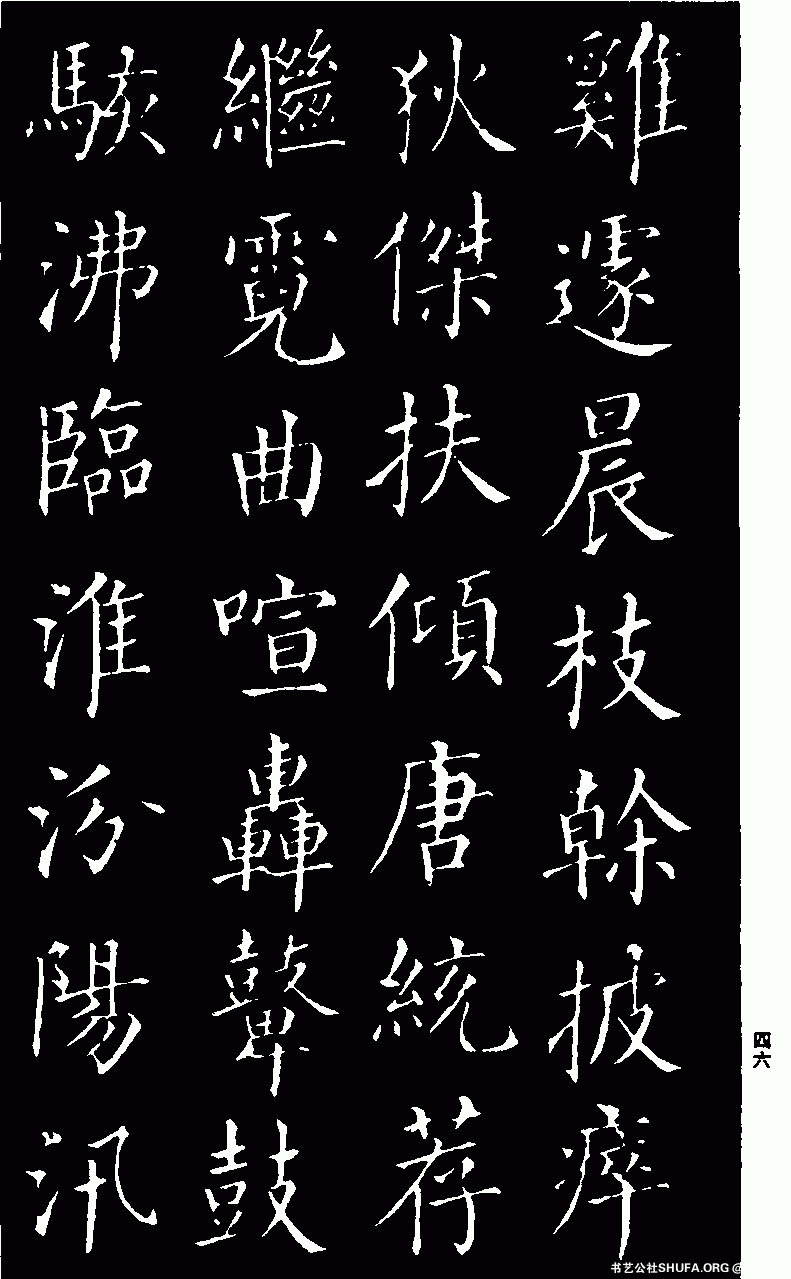 雞遽晨枝榦披瘁
狄傑扶傾唐統荐
繼霓曲喧轟鼙鼓
駭沸臨淮汾陽汛
四六
书艺公社SHUFA.ORG @